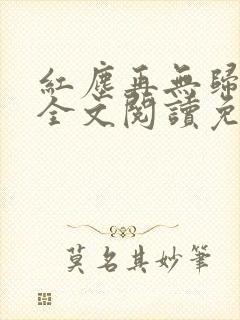 紅塵再無歸
全文閱讀免
莫名其妙筆